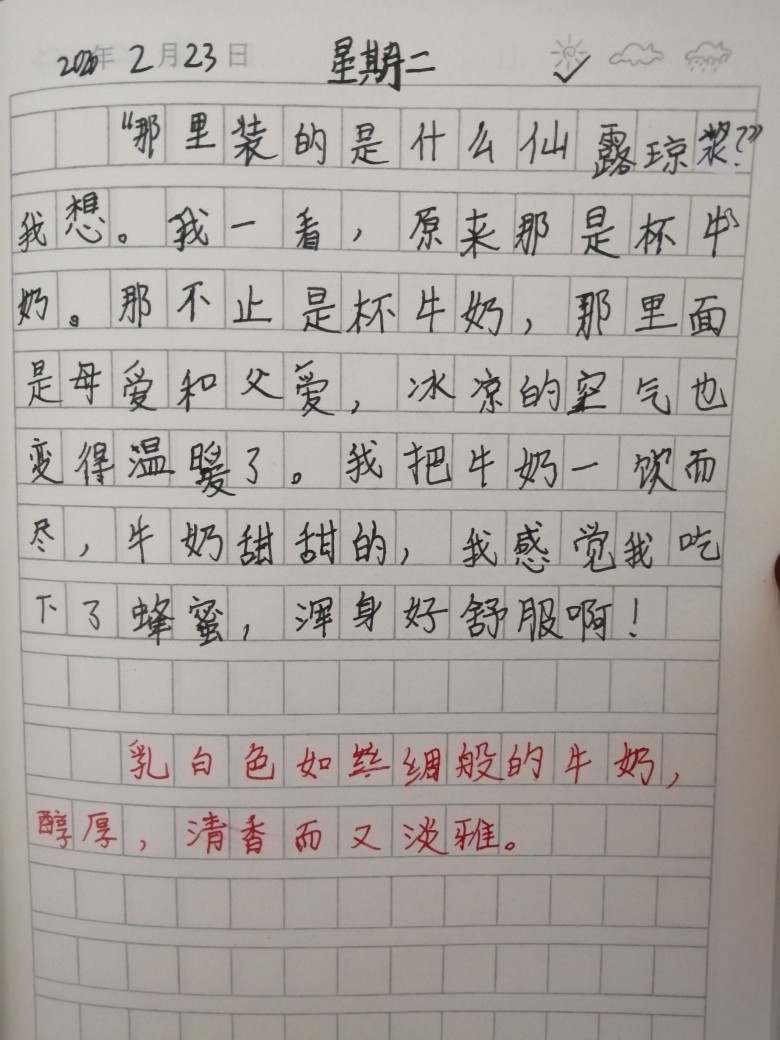 2020年2月23日 星期二
“那里装的是什么仙露琼浆？”
我想。我一看，原来那是杯牛
奶。那不止是杯牛奶，那里面
是母爱和父爱，冰凉的空气也
变得温暖了。我把牛奶一饮而
尽，牛奶甜甜的，我感觉我吃
下了蜂蜜，浑身好舒服啊！
乳白色如丝绸般的牛奶，
醇厚，清香而又淡雅。